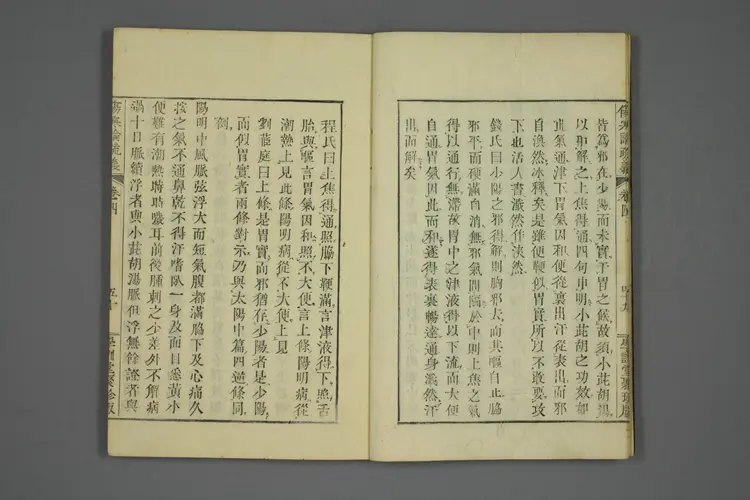 傷寒論疏義
卷四
四十九
皆爲邪在少陽而未實于胃之候故須小茈胡湯
以和解之上焦得通四句申明小茈胡之功效如
此氣通津下胃氣因和便從裏出汗從表出而邪
自渙然冰釋矣是雖便鞕似胃實所以不敢要攻
下也活人書濈然作漐然
錢氏曰少陽之邪得解則胸邪去而其嘔自止脇
邪平而硬滿自消無邪氣間隔於中則上焦之氣
得以通行無滯故胃中之津液得以下流而大便
自通胃氣因此而和遂得表裏暢達通身濈然汗
出而解矣
程氏曰上焦得通照脇下鞕滿言津液得下照舌
胎與嘔言胃氣因和照不大便言上條陽明病從
潮熱上見此條陽明病從不大便上見
劉茝庭曰上條是胃實而邪猶存少陽者是少陽
而似胃實者兩條對示乃與太陽中篇四逆條同
例
陽明中風脈弦浮大而短氣腹都滿脇下及心痛久
按之氣不通鼻乾不得汗嗜臥一身及面目悉黃小
便難有潮熱時時噦耳前後腫刺之少差外不解病
過十日脈續浮者與小茈胡湯脈但浮無餘證者與
傷寒論疏義
卷四
五十